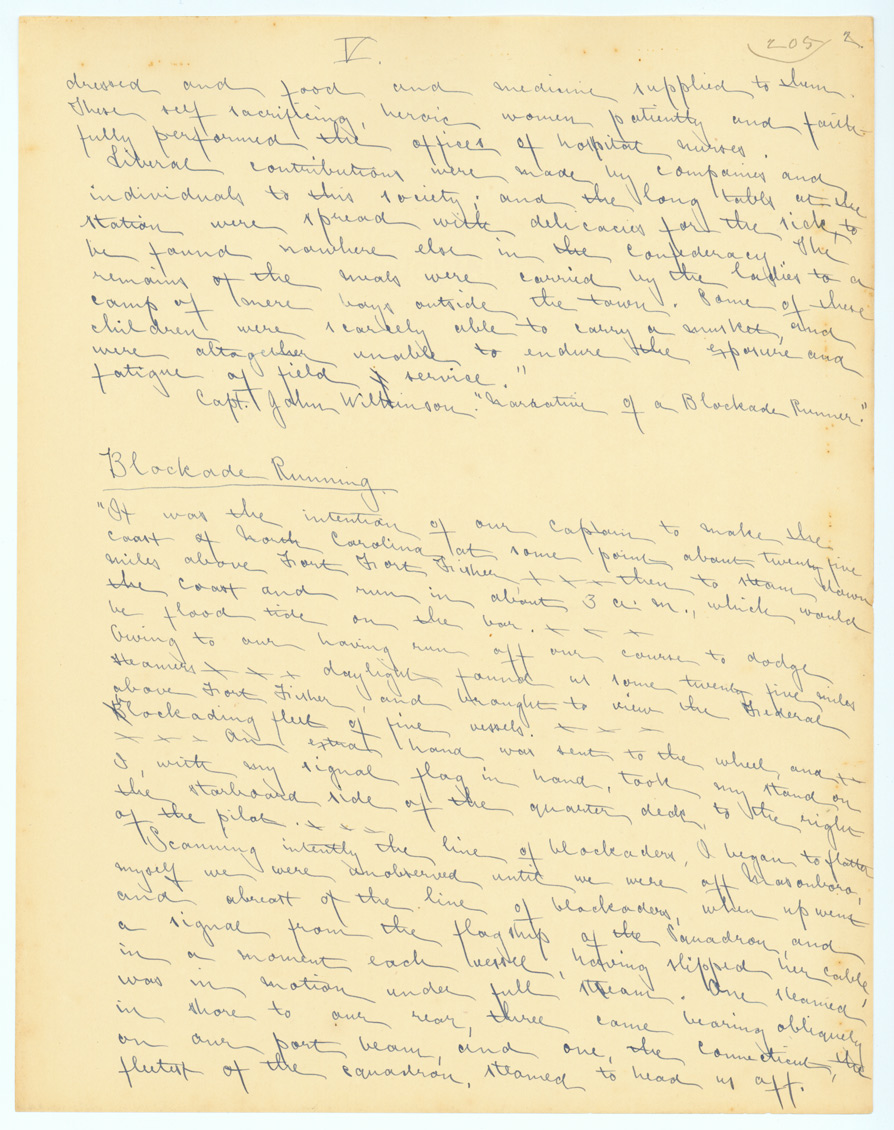 V.
205 2.
dressed and food and medicine supplied to them.
These self sacrificing, heroic women patiently and faith-
fully performed the offices of hospital nurses.
Liberal contributions were made by companies and
individuals to this society; and the long tables at the
station were spread with delicacies for the sick, to
be found nowhere else in the Confederacy. The
remains of the meals were carried by the ladies to a
camp of mere boys outside the town. Some of these
children were scarcely able to carry a musket, and
were altogether unable to endure the exposure and
fatigue of field service."
Capt. John Wilkinson. "Narrative of a Blockade Runner."
Blockade Running.
"It was the intention of our captain to make the
coast of North Carolina at some point about twenty five
miles above Fort Fort Fisher x x x then to steam down
the coast and run in about 3 a. m., which would
be flood tide on the bar. x x x
Owing to our having run off our course to dodge
steamers x x x daylight found us some twenty five miles
above Fort Fisher, and brought to view the Federal
Blockading fleet of five vessels. x x x
x x x An extra hand was sent to the wheel, and
I, with my signal flag in hand, took my stand on
the starboard side of the quarter deck, to the right
of the pilot. x x x
Scanning intently the line of blockaders, I began to flatter
myself we were unobserved until we were off Masonboro,
and abreast of the line of blockaders, when up went
a signal from the flagship of the Squadron, and
in a moment each vessel, having slipped her cable,
was in motion under full steam. One steamed
in shore to our rear, three came bearing obliquely
on our port beam, and one, the Connecticut, the
fleetest of the squadron, steamed to head us off.